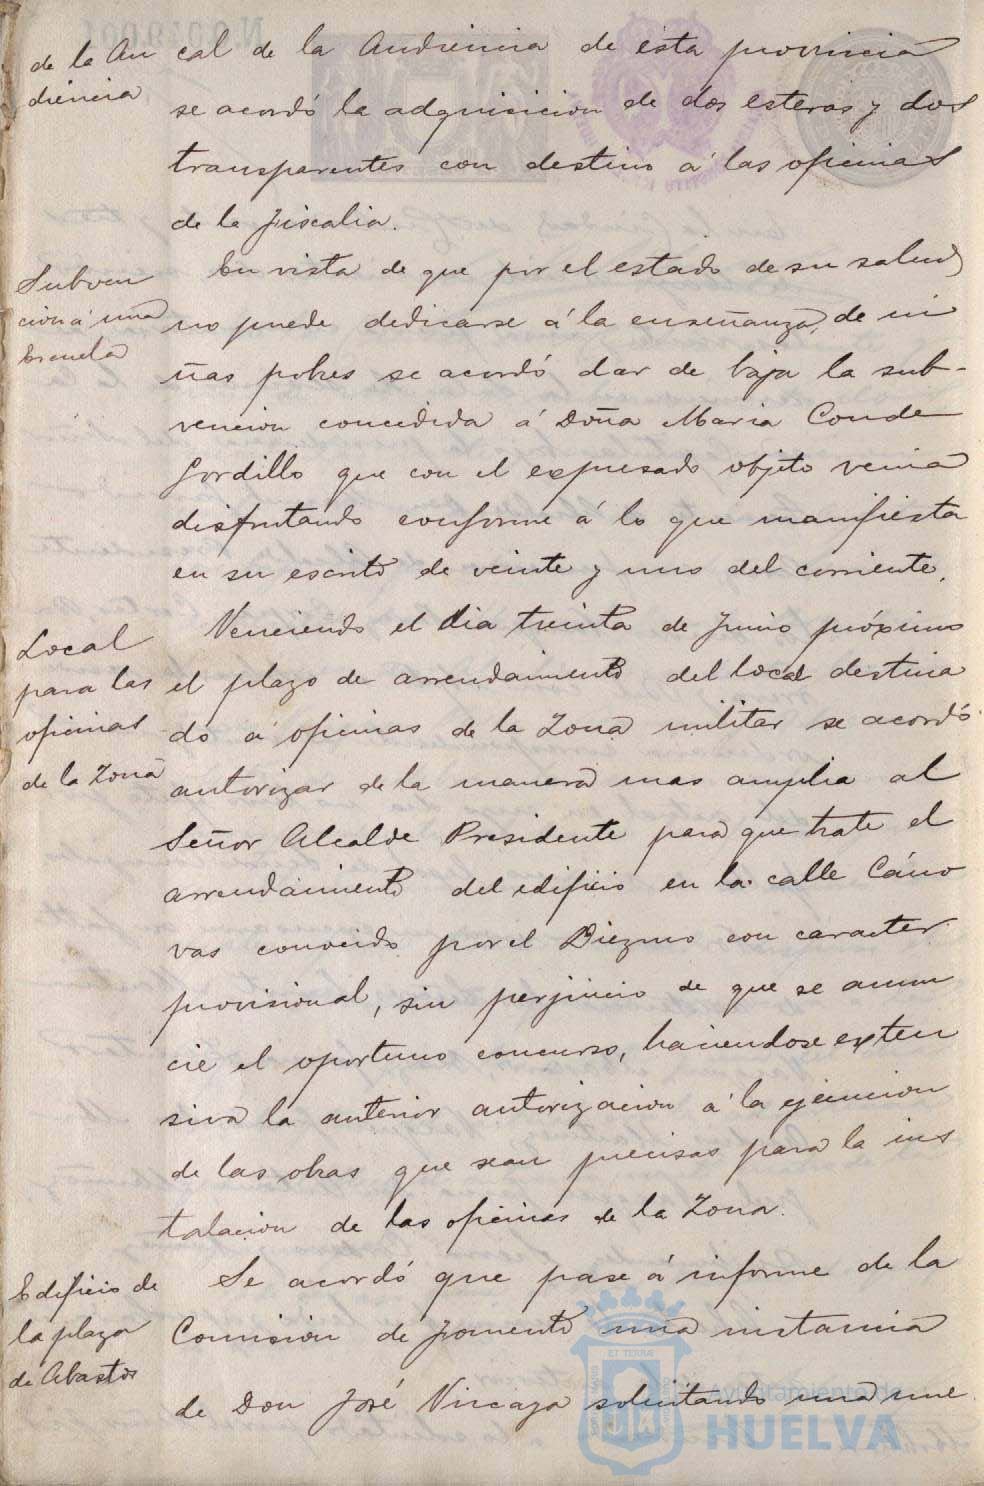 de la Au
diencia
cal de la Audiencia de esta provincia
se acordó la adquisicion de dos esteras y dos
transparentes con destino á las oficinas
de la fiscalia.
Subven
cion á una
Escuela
En vista de que por el estado de su salud
no puede dedicarse á la enseñanza de ni
ñas pobres se acordó dar de baja la sub-
vencion concedida á Doña Maria Conde
Gordillo que con el expresado objeto venia
disfrutando conforme á lo que manifiesta
en su escrito de veinte y uno del corriente.
Local
para las
oficinas
de la Zona
Venciendo el dia treinta de Junio próximo
el plazo de arrendamiento del local destina
do á oficinas de la Zona militar se acordó
autorizar de la manera mas amplia al
Señor Alcalde Presidente para que trate el
arrendamiento del edificio en la calle Cáno
vas conocido por el Diezmo con caracter
provisional, sin perjuicio de que se anun
cie el oportuno concurso, haciendose exten
siva la anterior autorizacion á la ejecucion
de las obras que sean precisas para la ins
talacion de las oficinas de la Zona.
Edificio de
la plaza
de Abastos
Se acordó que pase á informe de la
Comision de fomento una instancia
de Don José Vizcaya solicitando una nue
ET TERRÆ
Ayuntamiento de
HUELVA